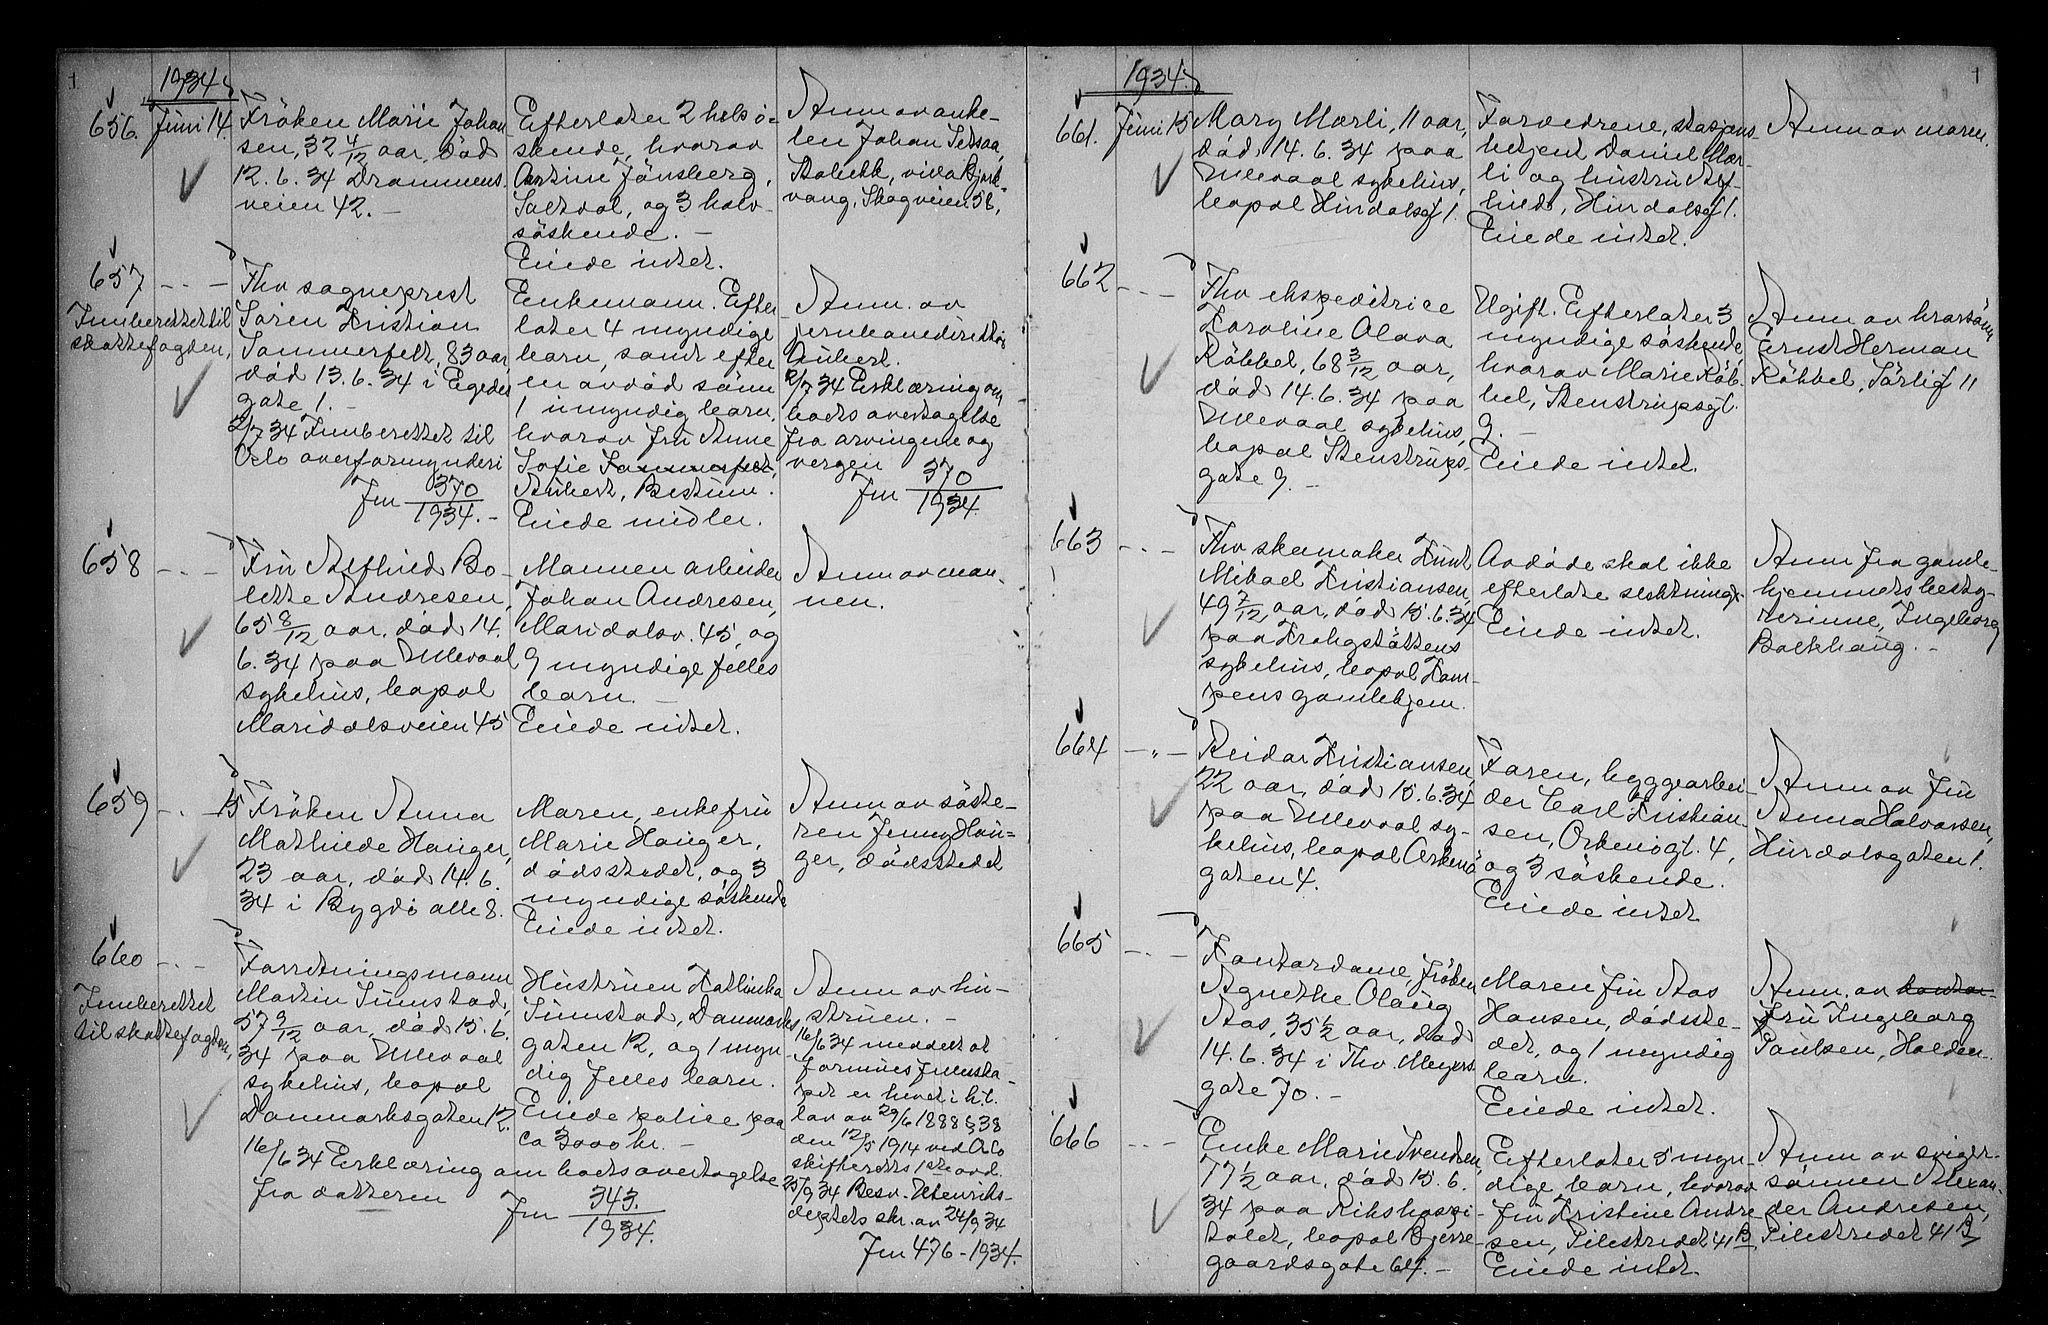 1934.
656. Juni 14
Fröken Marie Johan-
sen, 32 4/12 aar, död
12.6.34 Drammens-
veien 42. -
Efterlater 2 helsö-
skende, hvorav
Antine Jönsberg,
Saltdal, og 3 halv-
söskende. -
Eiede intet.
Anm av onke-
len Johan
Stabekk, villa Bjerk-
vang, Skogveien 58.
657 - " -
Innberettet til
skattefogden.
Fhv sogneprest
Sören Kristian
Sommerfelt, 83 aar,
död 13.6.34 i Egedes
gate 1. -
2/7 34 Innberettet til
Oslo overformynderi
Jnr 370/1934. -
Enkemann. Efter-
later 4 myndige
barn, samt efter
en avdöd sönn
1 umyndig barn,
hvorav fru Anne
Sofie Sommerfelt,
Aubert, Bestum.
Eiede midler.
Anm. av
jernbanedirektör
Aubert.
2/7 34 Erklæring om
boets overtagelse
fra arvingene og
vergen
Jnr 370/1934.
658 - " -
Fru Alfhild Bo-
lette Andresen,
65 8/12 aar, död 14.
6.34 paa Ullevaal
sykehus, bopæl
Maridalsveien 45
Mannen arbeider
Johan Andresen,
Maridalsv. 45, og
9 myndige felles
barn. -
Eiede intet.
Anm av man-
nen.
659 - " - 15
Fröken Anna
Mathilde Hauger,
23 aar, död 14.6.
34 i Bygdö alle 8.
Moren, enkefru
Marie Hauger,
dödsstedet, og 3
myndige söskende
Eiede intet.
Anm av söste-
ren Jenny Hau-
ger, dödsstedet
660 - " -
Innberettet
til skattefogden,
Forretningsmann
Martin Sunstad,
57 9/12 aar, död 15.6.
34 paa Ullevaal
sykehus, bopæl
Danmarksgaten 12.
16/6 34 Erklæring om boets overtagelse
fra datteren Jnr 343./1934.
Hustruen Kathinka
Sunstad, Danmarks
gaten 12, og 1 myn
dig felles barn.
Eiede police paa
ca 3000 kr. -
Anm av hu-
struen. -
16/6 34 meddelt at
formuesfellesska-
pet er hevet i h.t.
lov av 29/6 1888 § 38
den 12/5 1914 ved Oslo
skifteretts 1ste avd.
25/9 34 Besv. Utenriks-
deptets skr. av 24/9 34
Jnr 476 - 1934.
1934.
661. Juni 15
Mary Mærli, 11 aar,
död 14.6.34 paa
Ullevaal sykehus,
bopæl Hurdalsgt 1.
Forældrene, stasjons-
betjent Daniel Mær-
li og hustru Alf-
hild, Hurdalsgt 1.
Eiede intet.
Anm av moren.
662 - " -
Fhv ekspeditrice
Karoline Olava
Röbbel, 68 3/12 aar,
död 14.6.34 paa
Ullevaal sykehus,
bopæl Stenstrups-
gate 9. -
Ugift. Efterlater 3
myndige söskende,
hvorav Marie Röb-
bel, Stenstrupsgt.
9. -
Eiede intet.
Anm av brorsönn
Ernst Herman
Röbbel, Sörligt 11
663 - " -
Fhv skomaker Knut
Mikael Kristiansen,
49 7/12 aar, död 15.6.34
paa Krohgstöttens
sykehus, bopæl Kam-
pens gamlehjem.
Avdöde skal ikke
efterlate slektninger
Eiede intet.
Anm fra gamle-
hjemmets besty-
rerinne, Ingeborg
Bakkhaug. -
664 - " -
Reidar Kristiansen
22 aar, död 15.6.34
paa Ullevaal sy-
kehus, bopæl Orknö
gaten 4.
Faren, byggearbei-
der Carl Kristian-
sen, Orknögt. 4,
og 3 söskende.
Eiede intet
Anm av fru
Anna Halvorsen,
Hurdalsgaten 1.
665 - " -
Kontordame, fröken
Agnethe Olaug
Aas, 35 1/2 aar, död
14.6.34 i Thv. Meyers
gate 70. -
Moren fru Aas
Hansen, dödsste-
det, og 1 myndig
barn.
Eiede intet.
Anm. av kontor-
fru Ingeborg
Paulsen, Halden.
666 - " -
Enke Marie Svendsen,
77 1/2 aar, död 15.6.
34 paa Rikshospi-
talet, bopæl Bjerre-
gaardsgate 64. -
Efterlater 5 myn-
dige barn, hvorav
fru Kristine Andre-
sen, Pilestredet 41 B
Eiede intet
Anm av sviger-
sönnen Alexan-
der Andresen,
Pilestredet 41 B